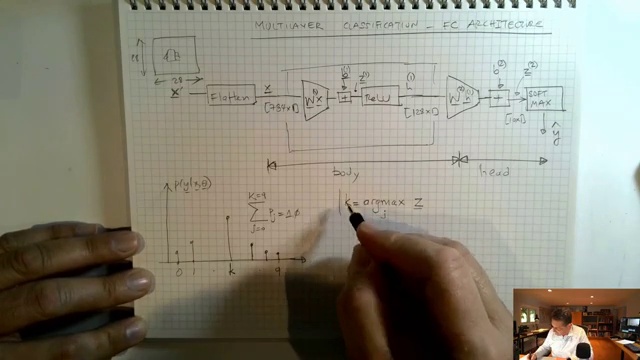 MULTILAYER CLASSIFICATION - FC ARCHITECTURE
28
28
x'
Flatten
x
[784x1]
W⁽¹⁾x
b⁽¹⁾
+
z⁽¹⁾
ReLU
h⁽¹⁾
[128x1]
W⁽²⁾h⁽¹⁾
b⁽²⁾
+
z⁽²⁾
[10x1]
SOFT
MAX
ŷ
body
head
p(y|x,θ)
K=9
Σ Pj = 1.0
j=0
k = argmax z
j
0 1 . k 9